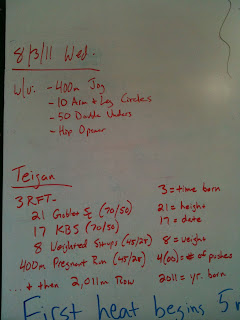 8/3/11 Wed.
w/u. - 400m Jog
- 10 Arm + Leg Circles
- 50 Double Unders
- Hip Opener
Teigan
3 RFT-
3 = time born
21 Goblet (70/50)
21 = height
17 KBS (70/50)
17 = date
8 Weighted Situps (45/25)
8 = weight
400m Pregnant Run (45/25)
4(00) = # of pushes
... + then 2,011m Row
2011 = yr. born
First heat begins 5